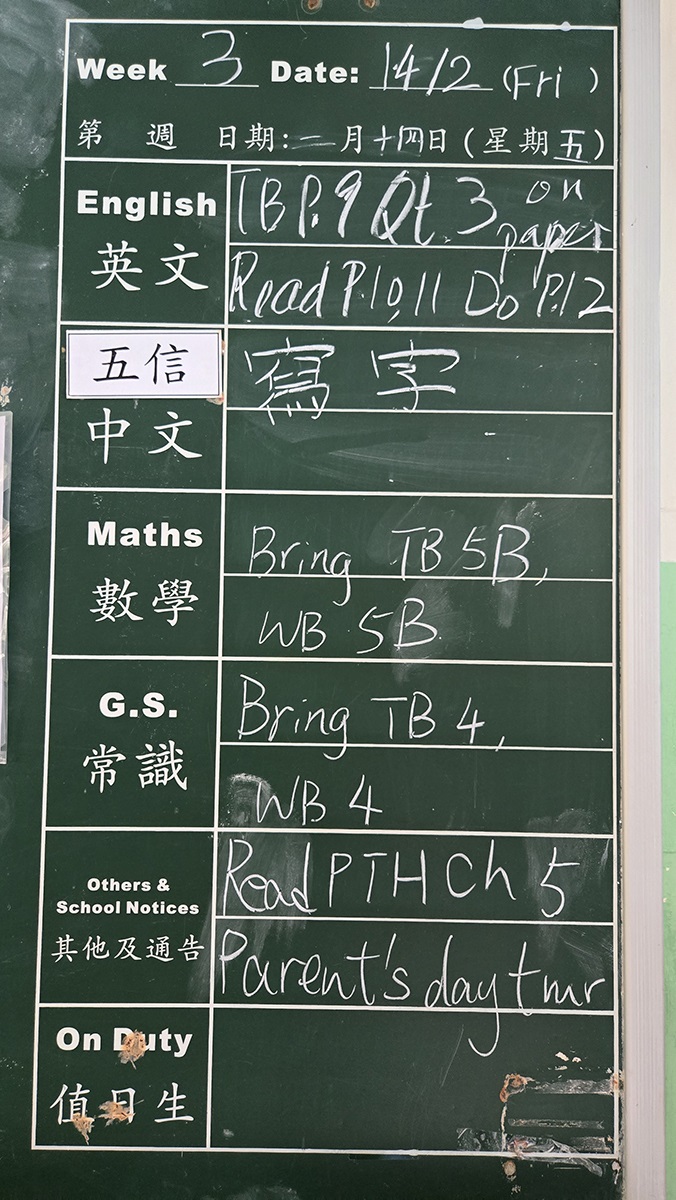 Week 3 Date: 14/2 (Fri)
第 週 日期: 二月十四日(星期五)
English
英文
TB P.9 Qt. 3 on paper
Read P.10,11 Do P.12
五信
中文
寫字
Maths
數學
Bring TB 5B,
WB 5B
G.S.
常識
Bring TB 4,
WB 4
Others &
School Notices
其他及通告
Read PTH Ch 5
Parent's day tmr
On Duty
值日生